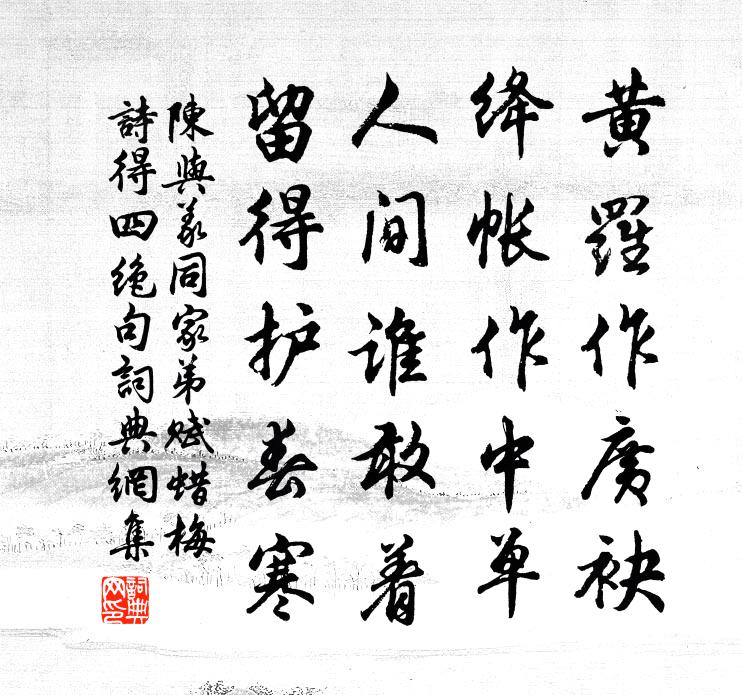 黃羅作廣袂
絳帳作中單
人間誰敢着
留得护春寒
陳與義同家弟賦蜡梅
詩得四絶句詞典網集
詞典网印